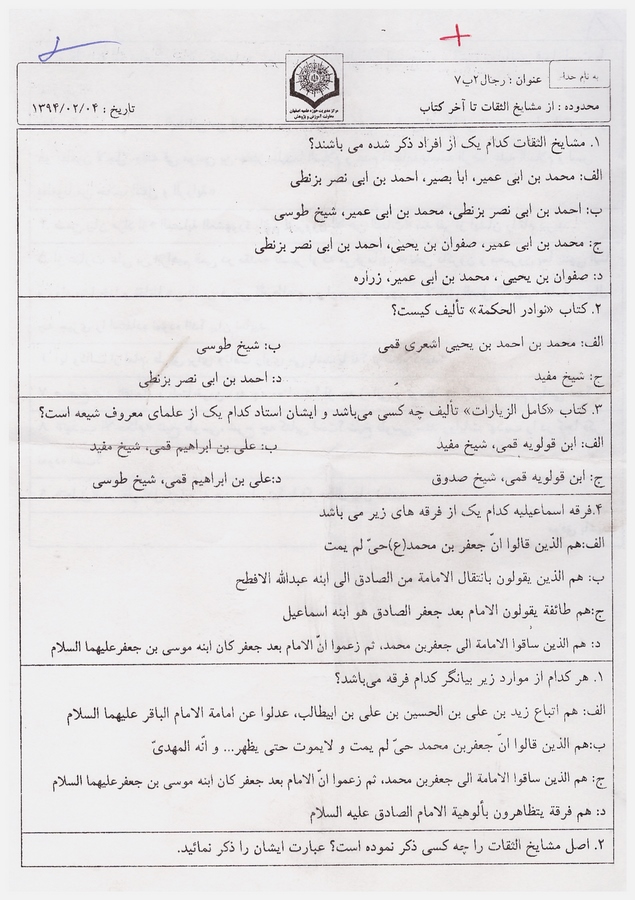 به نام خدا
عنوان : رجال۲پ۷
محدوده : از مشایخ الثقات تا آخر کتاب
مرکز مدیریت حوزه علمیه اصفهان
معاونت آموزش و پژوهش
تاریخ : ۱۳۹۴/۰۲/۰۴
۱. مشایخ الثقات کدام یک از افراد ذکر شده می باشند؟
الف: محمد بن ابی عمیر، ابا بصیر، احمد بن ابی نصر بزنطی
ب: احمد بن ابی نصر بزنطی، محمد بن ابی عمیر، شیخ طوسی
ج: محمد بن ابی عمیر، صفوان بن یحیی، احمد بن ابی نصر بزنطی
د: صفوان بن یحیی ، محمد بن ابی عمیر، زراره
۲. کتاب «نوادر الحکمة» تألیف کیست؟
الف: محمد بن احمد بن یحیی اشعری قمی ب: شیخ طوسی
ج: شیخ مفید د: احمد بن ابی نصر بزنطی
۳. کتاب «کامل الزیارات» تألیف چه کسی می‌باشد و ایشان استاد کدام یک از علمای معروف شیعه است؟
الف: ابن قولویه قمی، شیخ مفید ب: علی بن ابراهیم قمی، شیخ مفید
ج: ابن قولویه قمی، شیخ صدوق د:علی بن ابراهیم قمی، شیخ طوسی
۴.فرقه اسماعیلیه کدام یک از فرقه های زیر می باشد
الف:هم الذین قالوا انّ جعفر بن محمد(ع)حیّ لم یمت
ب: هم الذین یقولون بانتقال الامامة من الصادق الی ابنه عبدالله الافطح
ج:هم طائفة یقولون الامام بعد جعفر الصادق هو ابنه اسماعیل
د: هم الذین ساقوا الامامة الی جعفربن محمد، ثم زعموا انّ الامام بعد جعفر کان ابنه موسی بن جعفرعلیهما السلام
۱. هر کدام از موارد زیر بیانگر کدام فرقه می‌باشد؟
الف: هم اتباع زید بن علی بن الحسین بن علی بن ابیطالب، عدلوا عن امامة الامام الباقر علیهما السلام
ب:هم الذین قالوا انّ جعفربن محمد حیّ لم یمت و لایموت حتی یظهر... و انّه المهدیّ
ج: هم الذین ساقوا الامامة الی جعفربن محمد، ثم زعموا انّ الامام بعد جعفر کان ابنه موسی بن جعفرعلیهما السلام
د: هم فرقة یتظاهرون بألوهیة الامام الصادق علیه السلام
۲. اصل مشایخ الثقات را چه کسی ذکر نموده است؟ عبارت ایشان را ذکر نمائید.